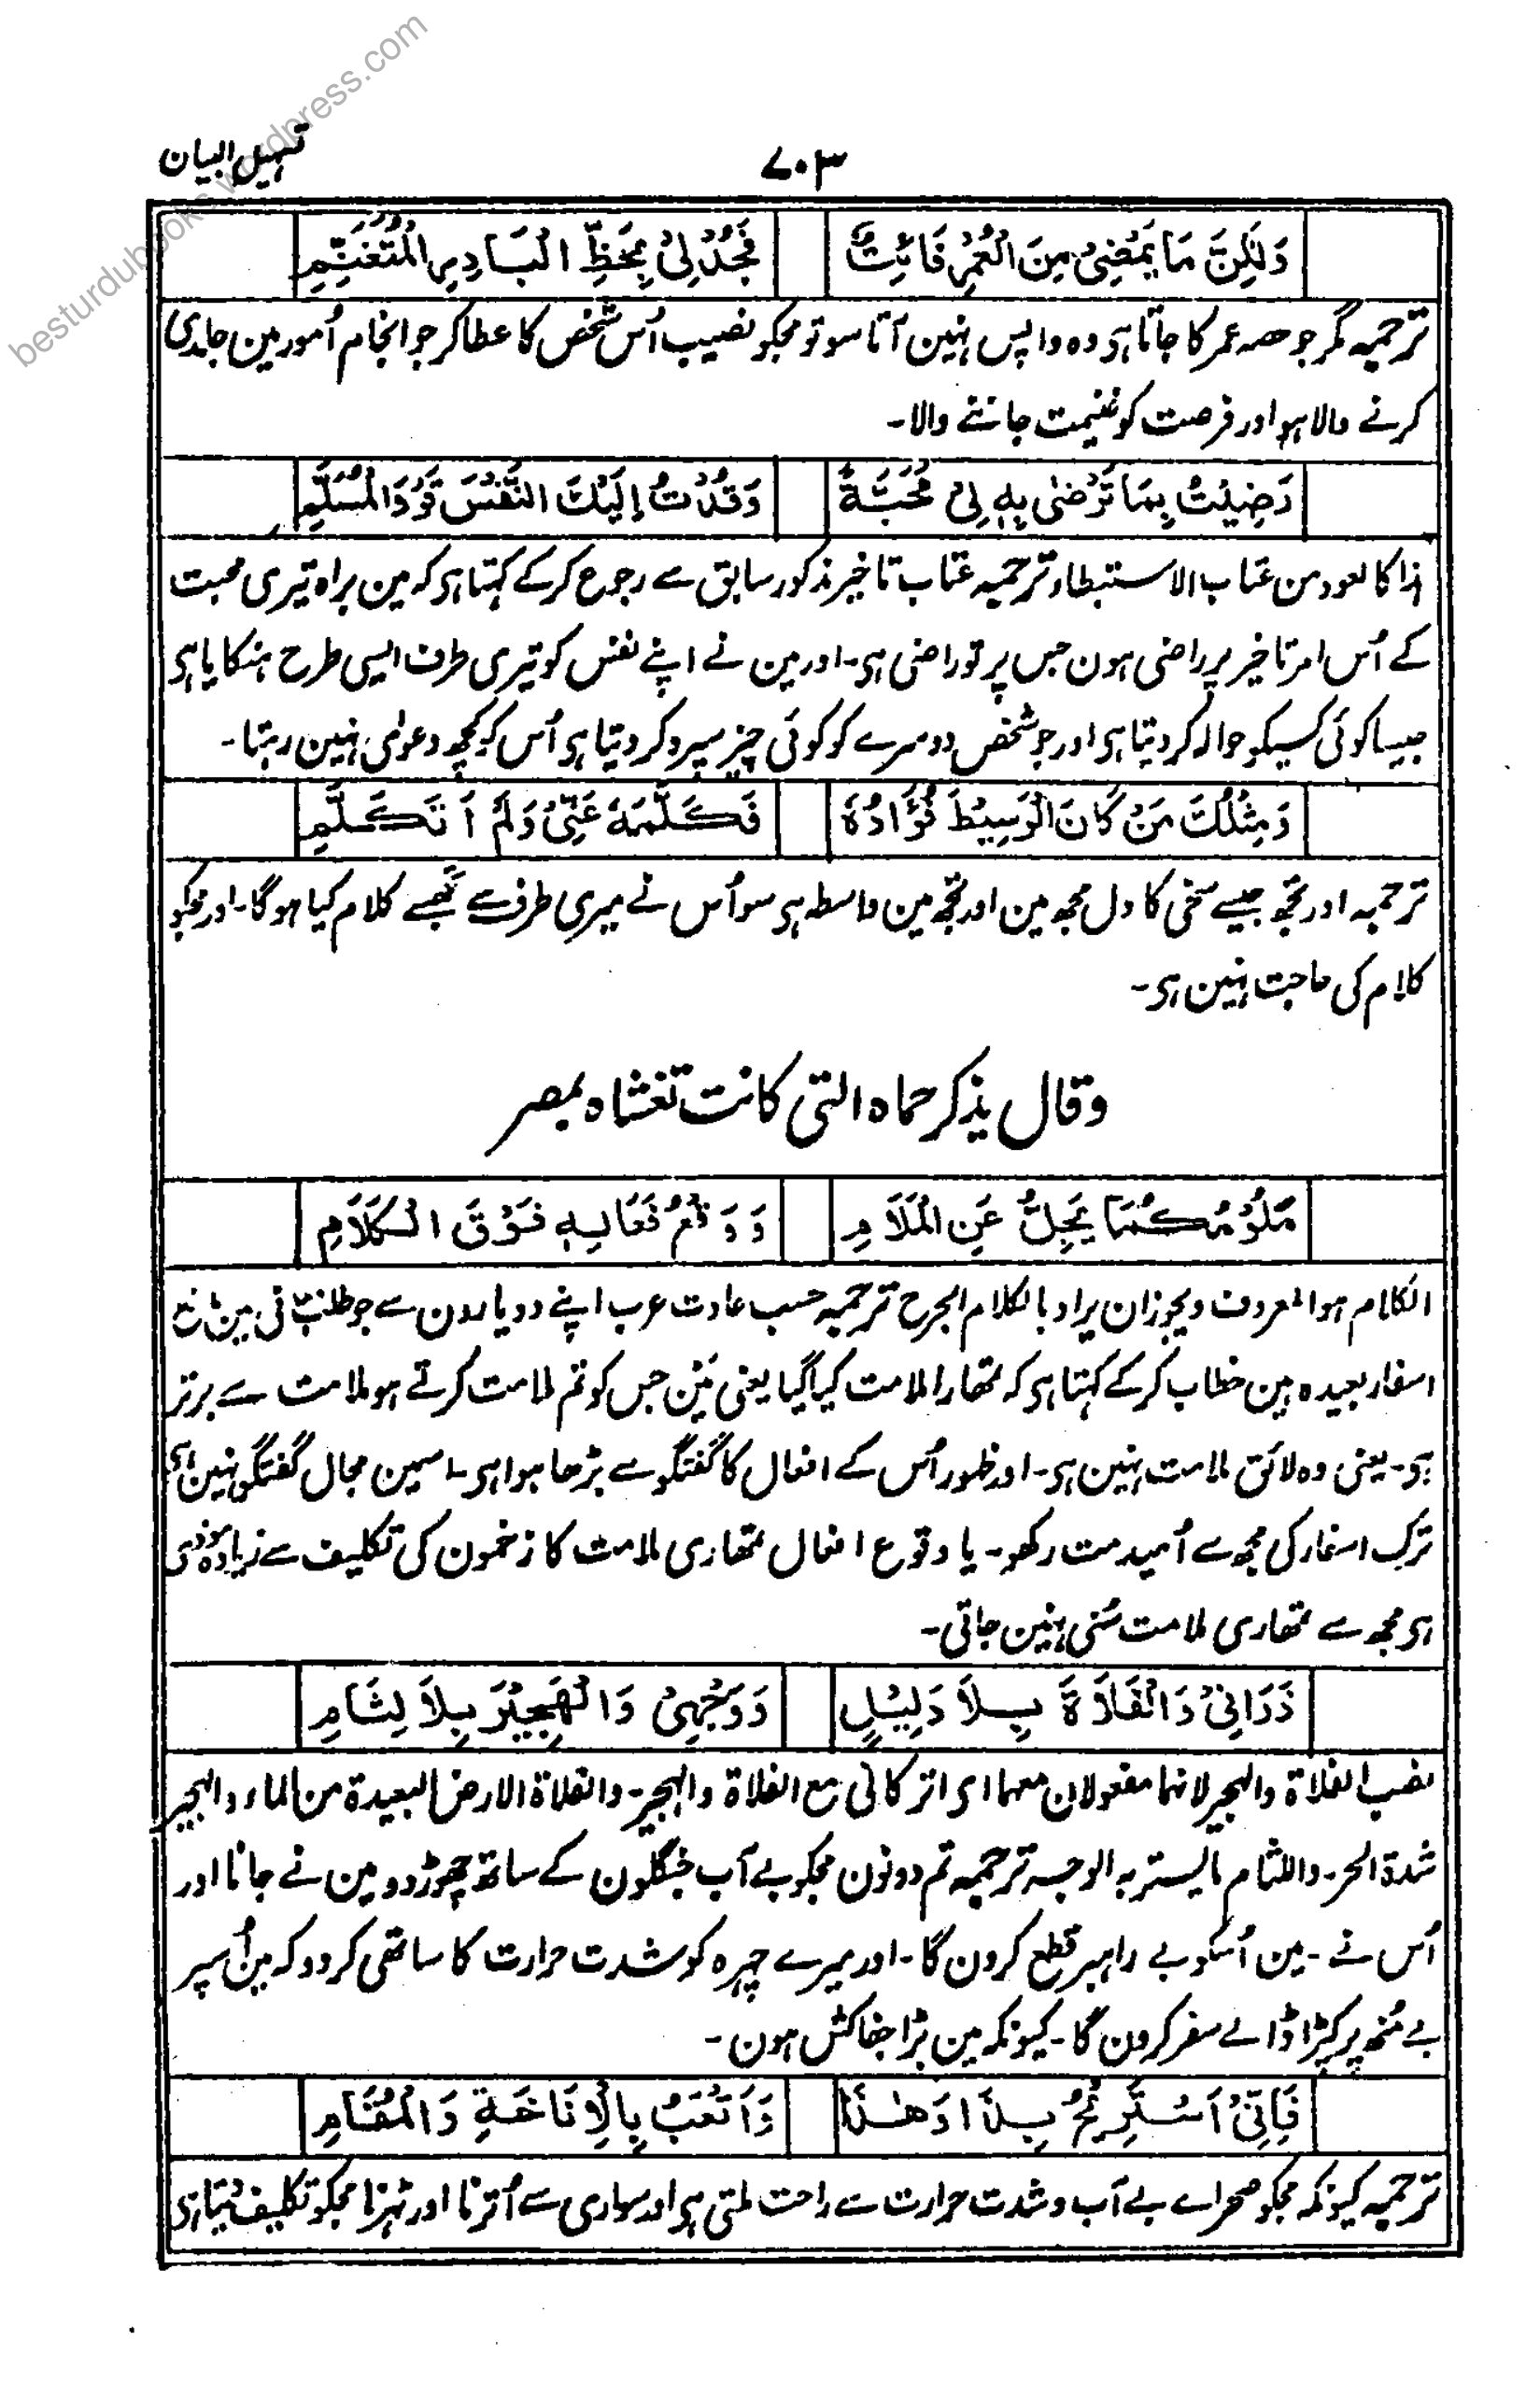 besturdubooks.wordpress.com
۷۰۳
تسہیل البیان
وَلٰكِنَّ مَا يَمْضِيْ مِنَ الْعُمْرِ فَائِتٌ فَجُدْ لِيْ بِحَظِّ الْبَادِرِ الْمُتَغَنِّمِ
ترجمہ مگر جو حصہ عمر کا جاتا ہی وہ واپس نہین آتا سو تو مجکو نصیب اُس شخص کا عطا کر جو انجام اُمور مین جلدی
کرنے والا ہو اور فرصت کو غنیمت جاننے والا۔
رَضِيْتُ بِمَا تَرْضٰى بِهٖ لِيْ مُحَبَّةً وَقُدْتُ اِلَيْكَ النَّفْسَ قَوْدَ الْمُسَلِّمِ
ہذا کالعود من عتاب الاستبطاء ترجمہ عتاب تاخیر مذکور سابق سے رجوع کرکے کہتا ہی کہ مین براہ تیری محبت
کے اُس امر تاخیر پر راضی ہون جس پر تو راضی ہی۔ اور مین نے اپنے نفس کو تیری طرف ایسی طرح ہنکایا ہی
جیسا کوئی کسیکو حوالہ کر دیتا ہی اور جو شخص دوسرے کو کوئی چیز سپرد کر دیتا ہی اُس کو کچھ دعوٰی نہین رہتا۔
وَمِثْلُكَ مَنْ كَانَ الْوَسِيْطَ فُؤَادُهٗ فَكَلَّمَهٗ عَنِّيْ وَلَمْ اَتَكَلَّمِ
ترجمہ اور تجھ جیسے سخی کا دل مجھ مین اور تجھ مین واسطہ ہی سو اُس نے میری طرف سے تجھسے کلام کیا ہوگا۔ اور مجکو
کلام کی حاجت نہین ہی۔
وقال یذکر حماہ التی کانت تغشاہ بمصر
مَلُوْمُكُمَا يَجِلُّ عَنِ الْمَلَامِ وَوَقْعُ فَعَالِهٖ فَوْقَ الْكَلَامِ
الکلام ہو المعروف ویجوز ان یراد بالکلام الجرح ترجمہ حسب عادت عرب اپنے دو یارون سے جو
اسفار بعیدہ ہین خطاب کرکے کہتا ہی کہ تمھارا ملامت کیا گیا یعنی مَین جس کو تم ملامت کرتے ہو ملامت سے برتر
ہی۔ یعنی وہ لائق ملامت نہین ہی۔ اور ظہور اُس کے افعال کا گفتگو سے بڑھا ہوا ہی۔ اسمین مجال گفتگو نہین
ترک اسفار کی مجھ سے اُمید مت رکھو۔ یا وقوع افعال تمھاری ملامت کا زخمون کی تکلیف سے زیادہ موذی
ہی مجھ سے تمھاری ملامت سُنی نہین جاتی۔
ذَرَانِيْ وَالْفَلَاةَ بِلَا دَلِيْلٍ وَوَجْهِيْ وَالْهَجِيْرَ بِلَا لِثَامِ
نصب الفلاۃ والہجیر لانہما مفعولان معہما ای اترکانی مع الفلاۃ والہجیر۔ والفلاۃ الارض البعیدۃ من الماء والہجیر
شدۃ الحر۔ واللثام مایستر بہ الوجہ ترجمہ تم دونون مجکو بے آب جنگلون کے ساتھ چھوڑ دو مین نے جانا اور
اُس نے۔ مین اُسکو بے راہبر قطع کرون گا۔ اور میرے چہرہ کو شدت حرارت کا ساتھی کر دو کہ مین اُسپر
بے مُنھ پر کپڑا ڈالے سفر کرون گا۔ کیونکہ مین بڑا جفاکش ہون۔
فَاِنِّيْ اَسْتَرِيْحُ بِذَا وَهٰذَا وَاَتْعَبُ بِالْاِنَاخَةِ وَالْمُقَامِ
ترجمہ کیونکہ مجکو صحراے بے آب و شدت حرارت سے راحت ملتی ہی اور سواری سے اُترنا اور ٹہرنا مجکو تکلیف دیتا ہی